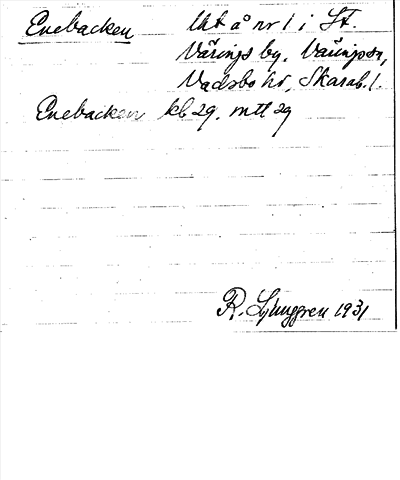 Enebacken Utt å nr 1 i St.
Värings by, Värings sn,
Vadsbo hd, Skarab. l.
Enebacken kb 29, mtl 29
R. Ljunggren 1931